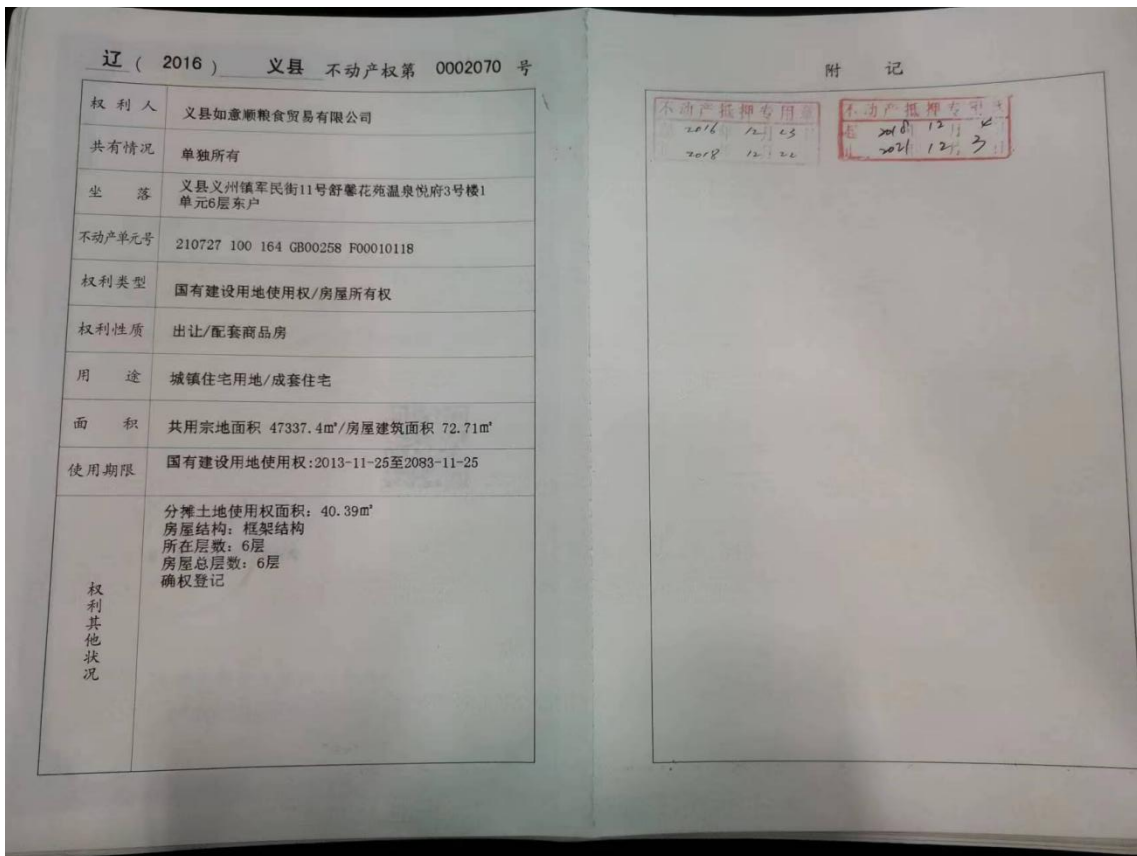 辽 ( 2016 ) 义县 不动产权第 0002070 号
权利人 义县如意顺粮食贸易有限公司
共有情况 单独所有
坐落 义县义州镇军民街11号舒馨花苑温泉悦府3号楼1
单元6层东户
不动产单元号 210727 100 164 GB00258 F00010118
权利类型 国有建设用地使用权/房屋所有权
权利性质 出让/配套商品房
用途 城镇住宅用地/成套住宅
面积 共用宗地面积 47337.4㎡/房屋建筑面积 72.71㎡
使用期限 国有建设用地使用权:2013-11-25至2083-11-25
权利其他状况
分摊土地使用权面积：40.39㎡
房屋结构：框架结构
所在层数：6层
房屋总层数：6层
确权登记
附记
不动产抵押专用章
2016 12 23
2018 12 22
不动产抵押专用章
2018 12 4
2021 12 3